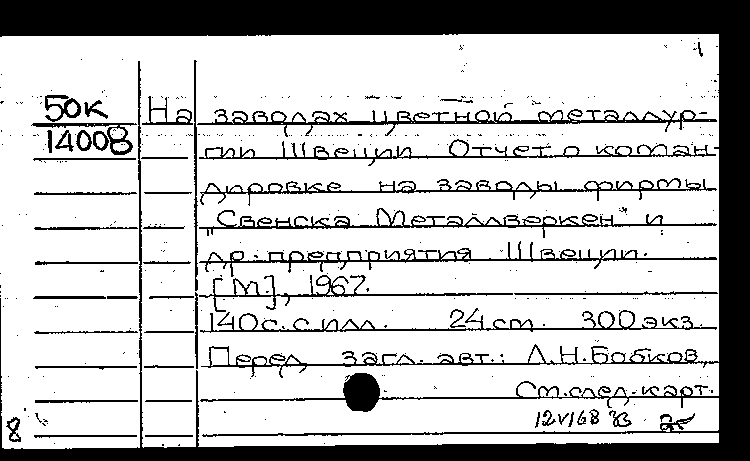 50К
14008
На заводах цветной металлур-
гии Швеции. Отчет о коман-
дировке на заводы фирмы
"Свенска Металлверкен" и
др. предприятия Швеции.
[М.], 1967.
140с. с илл. 24 см. 300 экз.
Перед загл. авт.: Л.Н.Бобков,
См. след. карт.
12VI68
8